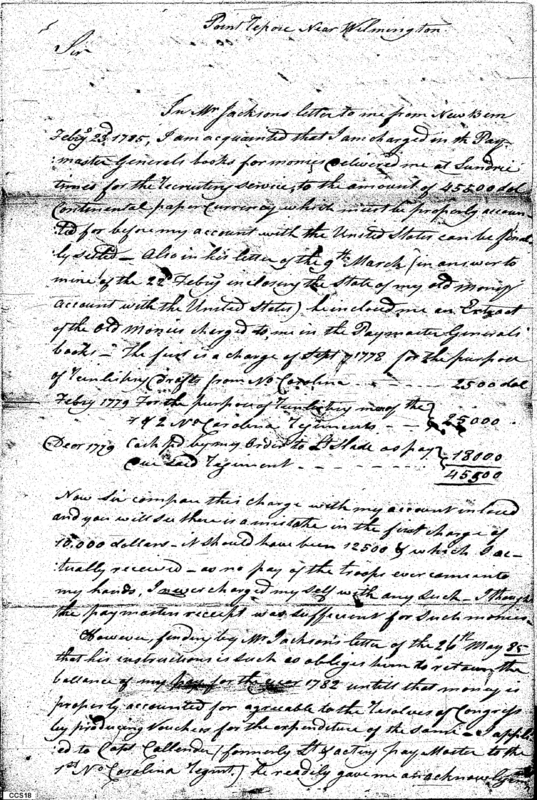 Point Repose Near Wilmington
Sir
In Mr Jacksons letter to me from New Bern
Feby 23d 1785, I am acquainted that I am charged in the Pay-
master Generals books for monies delivered me at Sundrie
times for the Recruiting service, to the amount of 45500 dol
Continental paper Currency which must be properly accoun-
ted for before my account with the United States can be final-
ly settled - Also in his letter of the 9th March (in answer to
mine of the 22d Feby inclosing the State of my old money
account with the United States) he inclosed me an Extract
of the Old Monies charged to me in the Paymaster Generals
books - The first is a charge of Sept 1778 for the purpose
of drafts from No Carolina - - - - 2500 dol
Feby 1779 For the purpose of men of the
1 & 2 No Carolina Regiments - - - 25000
Decr 1779 Cash pd by my Order to Lt Slade as pay
due said Regiment - - - 18000
45500
Now Sir compare this charge with my account inclosed
and you will see there is a mistake in the first charge of
10,000 dollars - it should have been 12500 & which I ac-
tually received - as no pay of the troops ever came into
my hands, I never charged my self with any such - I thought
the paymasters receipt was sufficient for such monies
However, finding by Mr Jackson's letter of the 26th May 85
that his instructions is such as obliges him to retain the
ballance of my pay for the year 1782 untill that money is
properly accounted for agreeable to the Resolves of Congress
by producing Vouchers for the expenditure of the same - I appli-
ed to Capt Callender (formerly Lt & acting pay Master to the
1st No Carolina Regmt.) he readily gave me an
CCS18